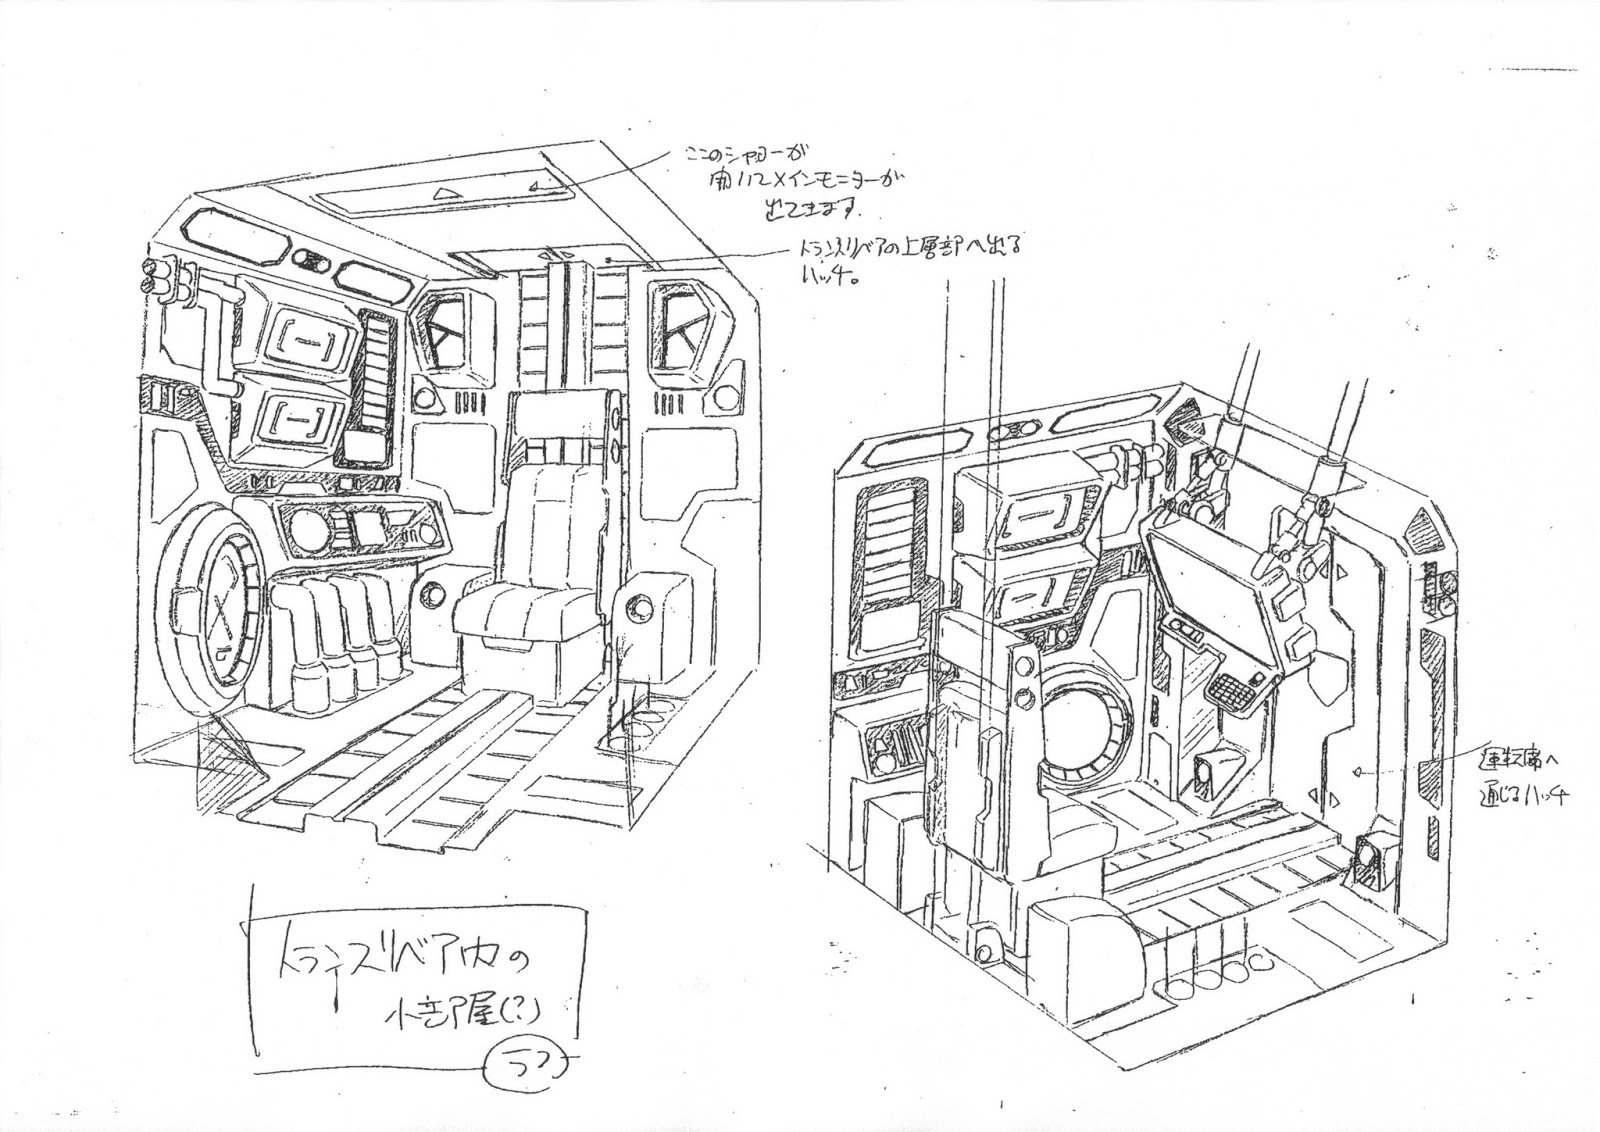 ここのシャッターが
開いてメインモニターが
出てきます。
トランスリベアの上層部へ出る
ハッチ。
運転席へ
通じるハッチ
トランスリベア内の
小部屋(?)
ラフ